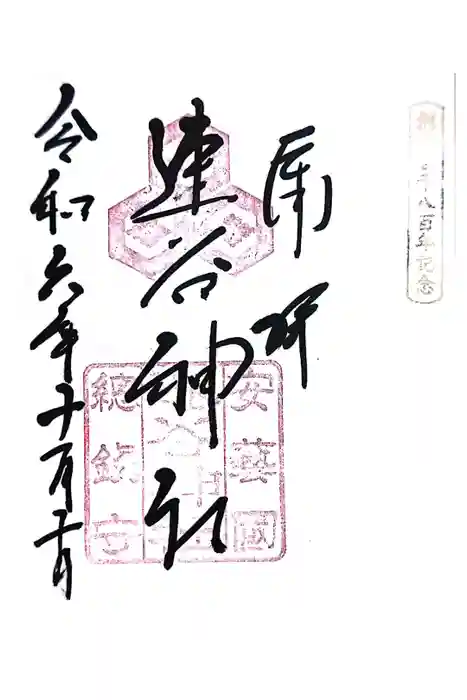 創祀千八百年記念
奉拝
速谷神社
安藝國
速谷神社
総鎮守
令和六年十月二日